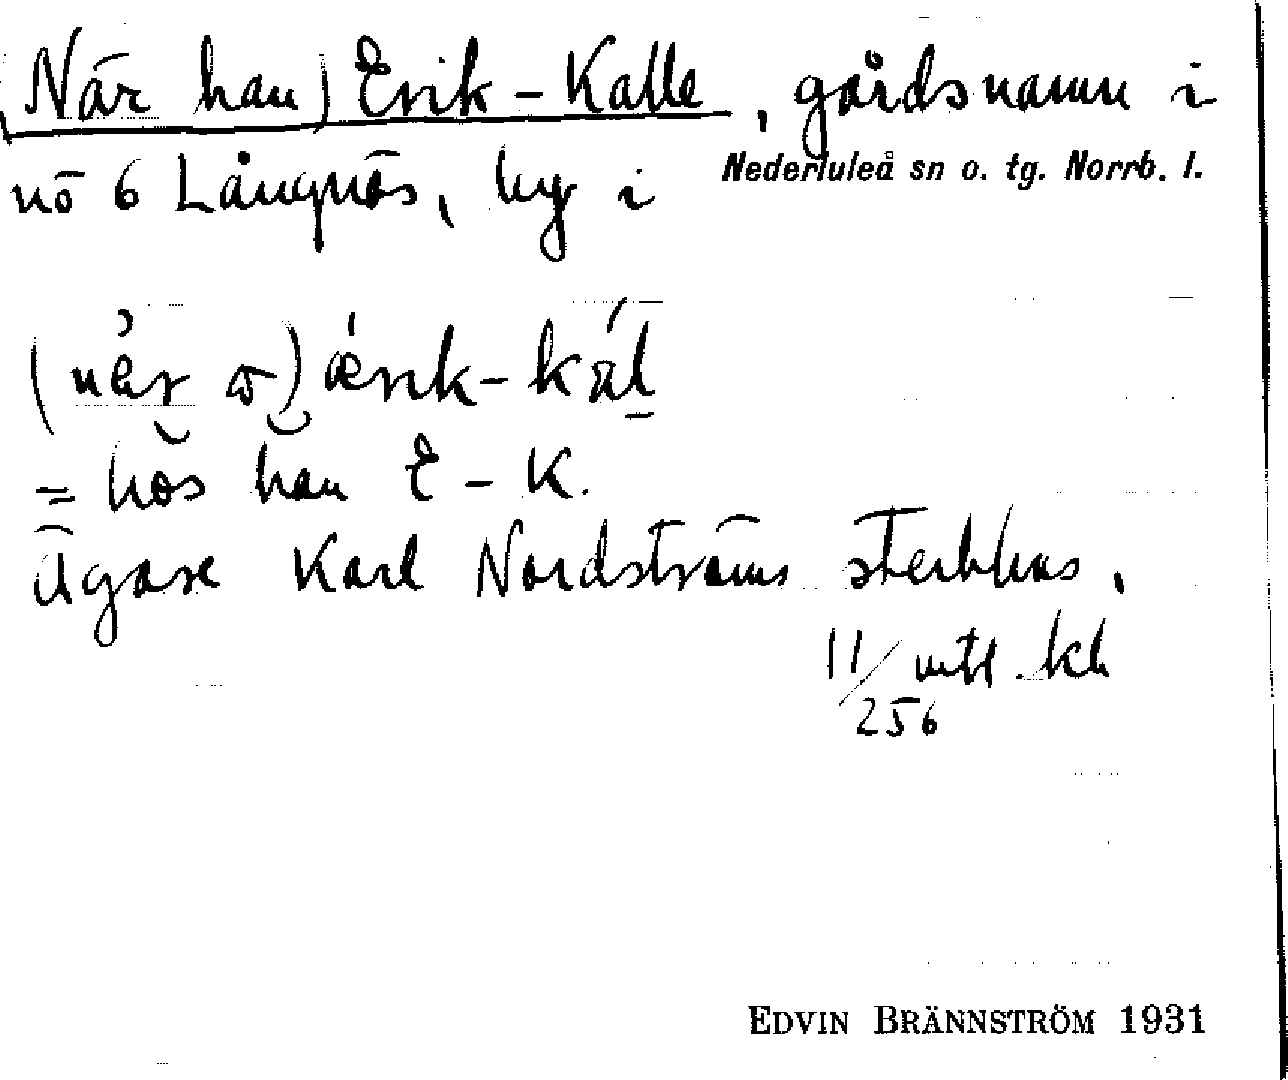 (När han) Erik-Kalle, gårdsnamn i
nö 6 Långnäs, by i Nederluleå sn o. tg. Norrb. l.
= hos han E-K.
Ägare Karl Nordströms sterbhus,
11/256 mtl.
EDVIN BRÄNNSTRÖM 1931